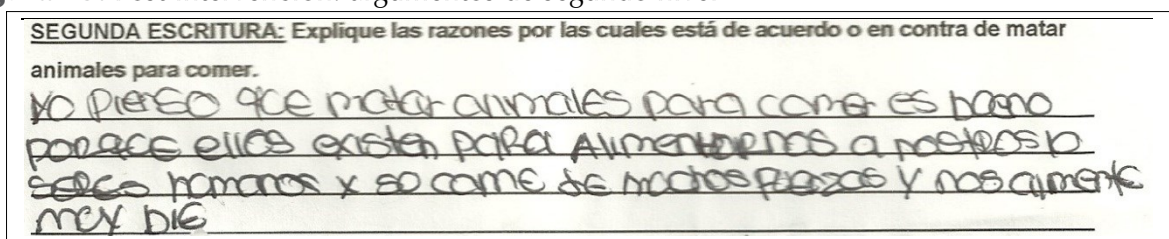 SEGUNDA ESCRITURA: Explique las razones por las cuales está de acuerdo o en contra de matar
animales para comer.
YO PIENSO qce matar animales para comer es bueno
porqce ellos existen para Alimentarnos a nosotros lo
seres homanos x so carne de mochos fuerzas y nos alimenta
moy bie